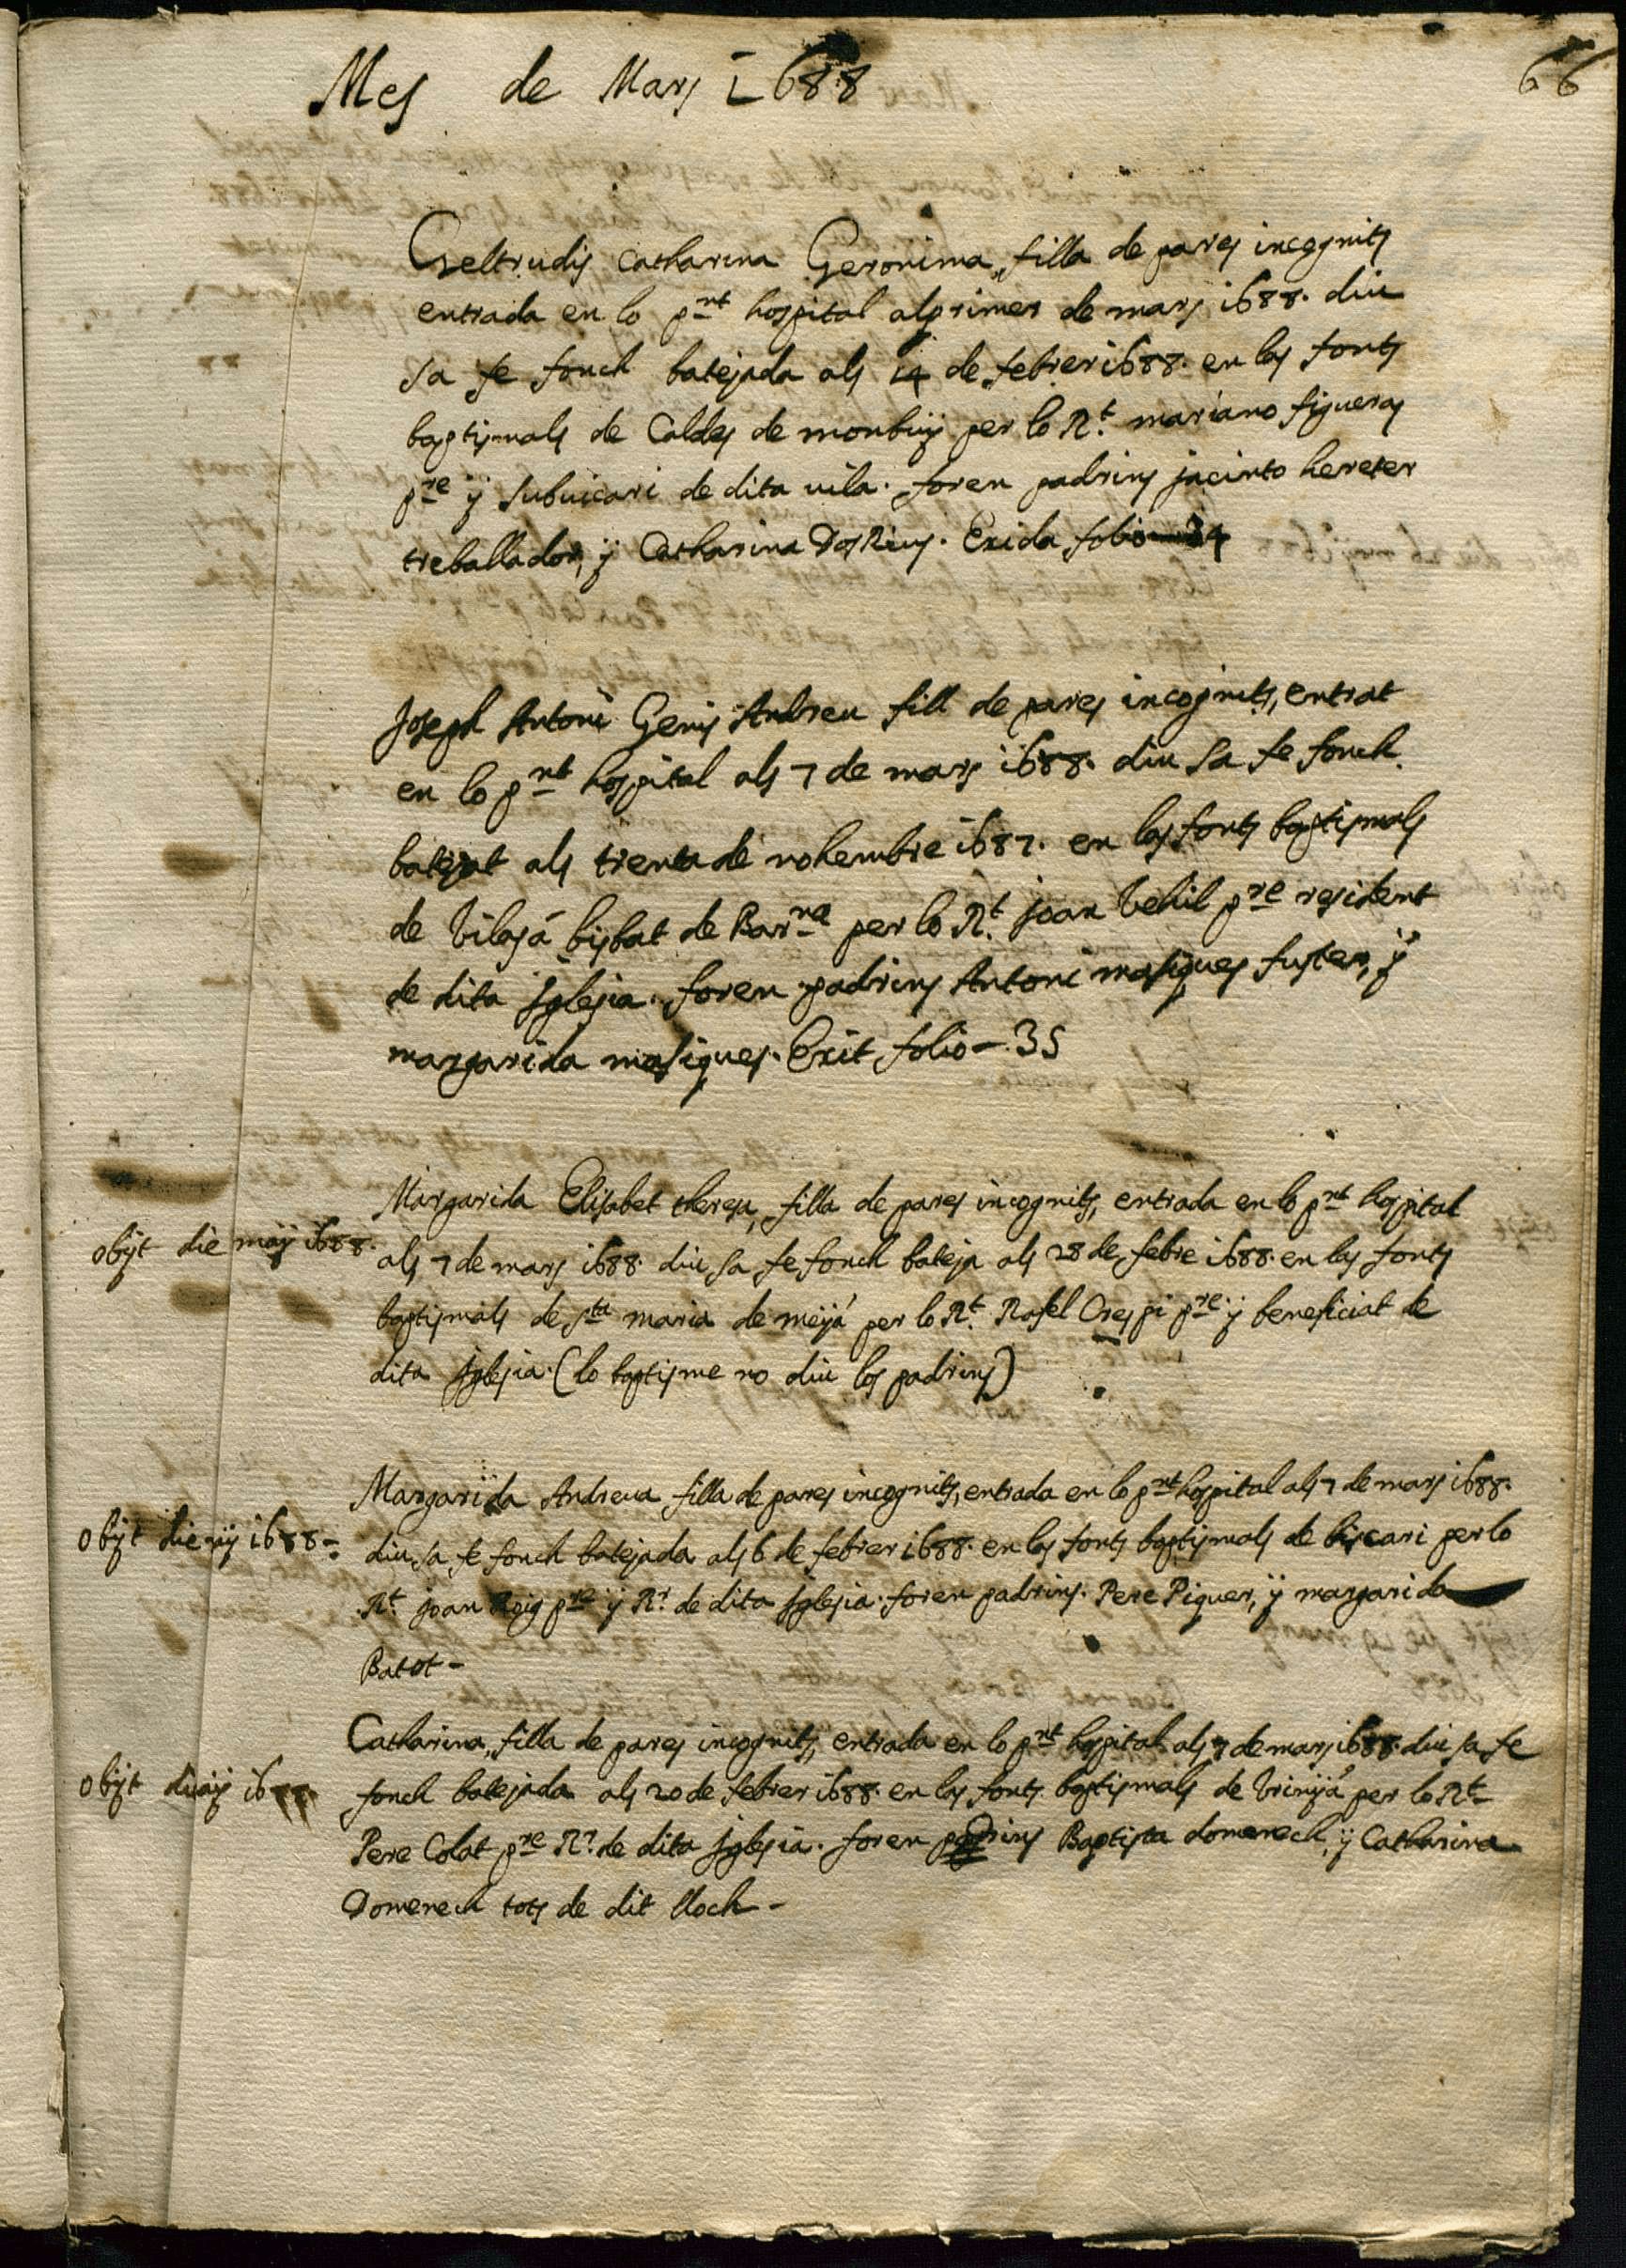 Mes de Mars 1688
66
Geltrudis Catharina Geronima, filla de pares incognits
entrada en lo pnt hospital al primer de mars 1688. diu
sa fe fonch batejada als 14 de febrer 1688. en las fonts
baptismals de Caldes de monbuÿ per lo Rt. mariano figueras
pre ÿ subvicari de dita vila. foren padrins jacinto hereter
treballador, ÿ Catharina DosRius. Exida folio 34
Joseph Antoni Genis Andreu fill de pares incognits, entrat
en lo pnt hospital als 7 de mars 1688. diu sa fe fonch
batejat als trenta de nohembre 1687. en las fonts baptismals
de Vilasá bisbat de Barna per lo Rt. joan Vehil pre resident
de dita Iglesia. foren padrins Antoni masiques fuster, ÿ
margarida masiques. Exit folio - 35
Margarida Elisabet theresa, filla de pares incognits, entrada en lo pnt hospital
obijt die maÿ 1688.
als 7 de mars 1688. diu sa fe fonch bateja als 28 de febre 1688. en las fonts
baptismals de sta maria de meÿá per lo Rt. Rafel Crespi pre ÿ beneficiat de
dita Iglesia. (lo baptisme no diu los padrins)
Margarida Andreua filla de pares incognits, entrada en lo pnt hospital als 7 de mars 1688.
obijt die 1688 -
diu sa fe fonch batejada als 6 de febrer 1688. en las fonts baptismals de biscari per lo
Rt. joan Roig pre ÿ Rr. de dita Iglesia. foren padrins. Pere Piquer, ÿ margarida
Batot -
Catharina, filla de pares incognits, entrada en lo pnt hospital als 7 de mars 1688. diu sa fe
obijt 1688
fonch batejada als 20 de febrer 1688. en las fonts baptismals de Vrinÿá per lo Rt
Pere Colat pre Rr. de dita Iglesia. foren padrins Baptista domenech, ÿ Catharina
Domenech tots de dit lloch -